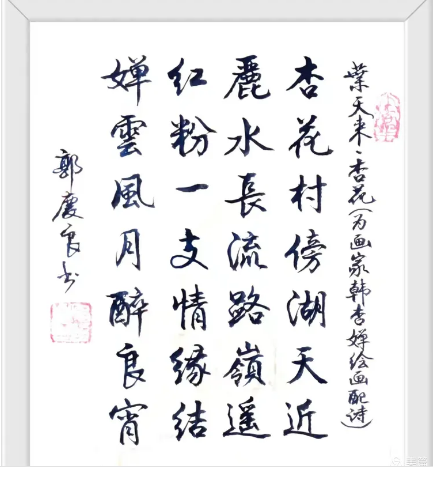 葉天来·杏花(为画家韩杏婵绘画配诗)
杏花村傍湖天近
麗水長流路嶺遥
红粉一支情缘结
婵雲風月醉良宵
郭慶良书